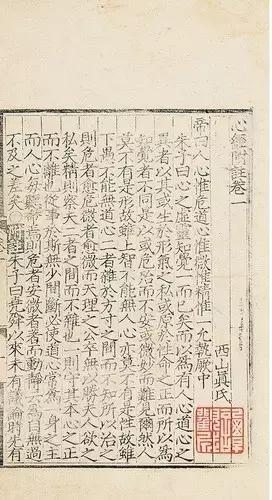 心經附註卷一
西山真氏
帝曰人心惟危道心惟微惟精惟一允執厥中
朱子曰心之虛靈知覺一而已矣而以為有人心道心之
異者以其或生於形氣之私或原於性命之正而所以為
知覺者不同是以或危殆而不安或微妙而難見爾然人
莫不有是形故雖上智不能無人心亦莫不有是性故雖
下愚不能無道心二者雜於方寸之間而不知所以治之
則危者愈危微者愈微而天理之公卒無以勝夫人欲之
私矣精則察夫二者之間而不雜也一則守其本心之正
而不離也從事於斯無少間斷必使道心常為一身之主
而人心每聽命焉則危者安微者著而動靜云為自無過
不及之差矣附註朱子曰堯舜以來未有議論時先有